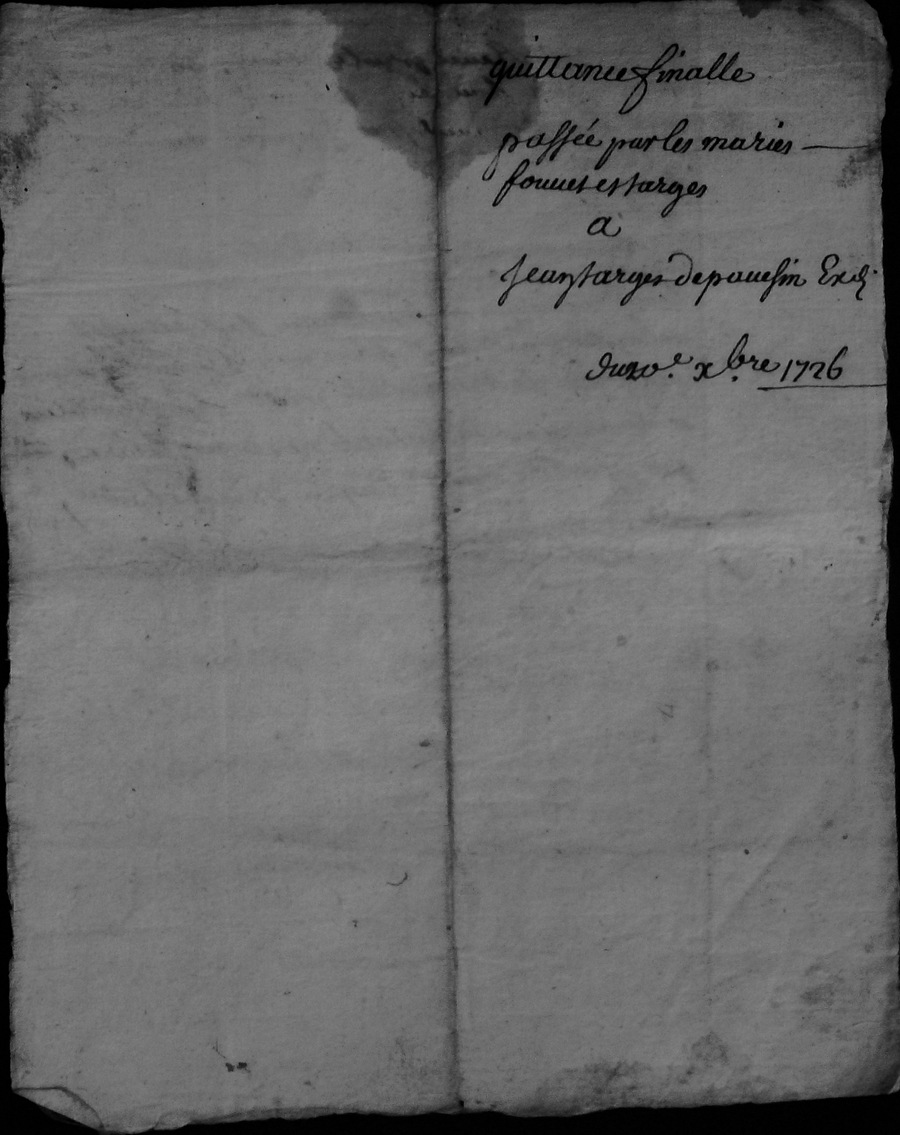 quittance finalle
passée par les maries
fouuet et sarges
a
Jean sarges de pouesin
du 20e. xbre 1726